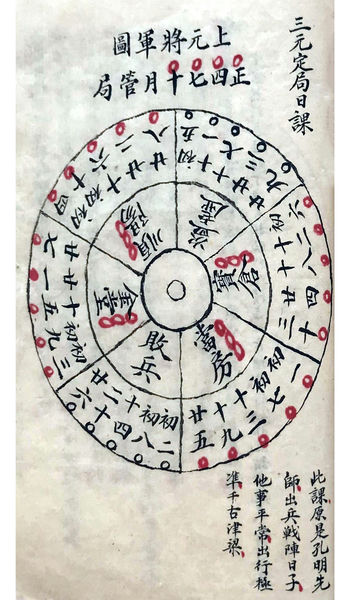 三元定局日課
上元將軍圖
正四七十月管局
富房
初一 初七 十三 十九 廿五
敗兵
初二 初八 十四 二十 廿六
金堂
初三 初九 十五 廿一 廿七
順陽
初四 初十 十六 廿二 廿八
初五 十一 十七 廿三 廿九
初六 十二 十八 廿四 三十
此課原是孔明先
師出兵戰陣日子
他事平常出行極
準千古津梁